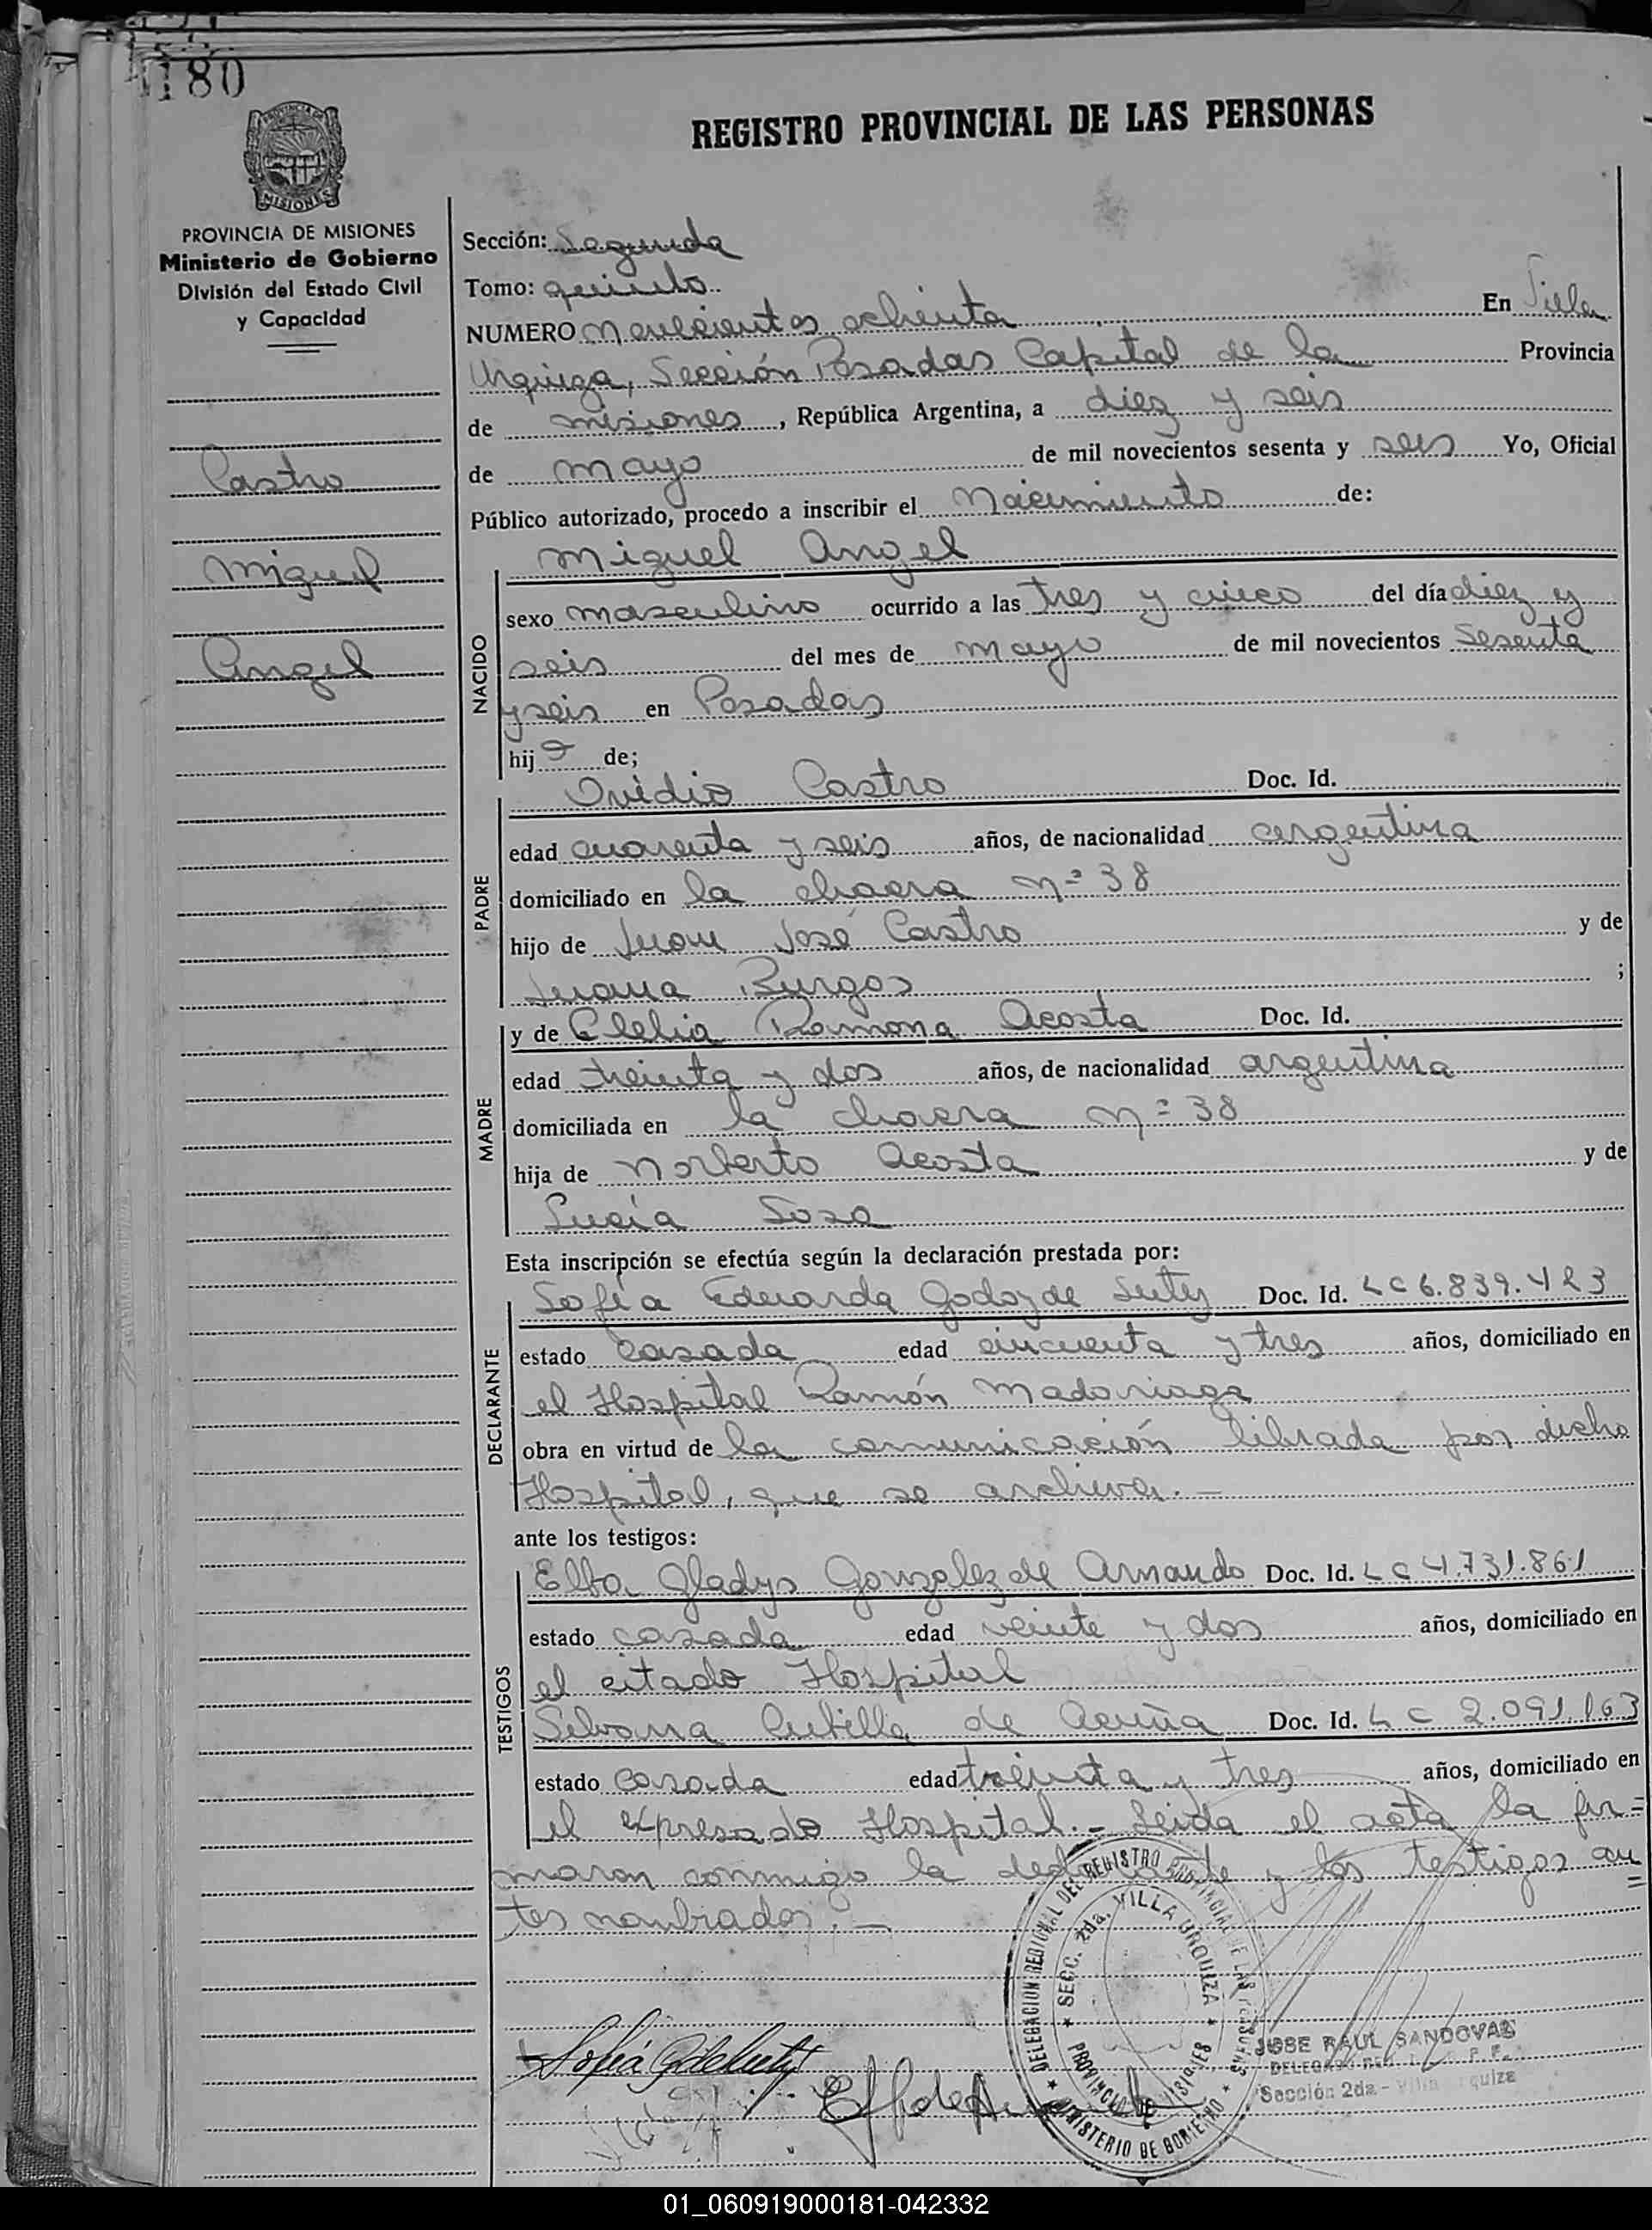 180
REGISTRO PROVINCIAL DE LAS PERSONAS
PROVINCIA DE
MISIONES
PROVINCIA DE MISIONES
Ministerio de Gobierno
División del Estado Civil
y Capacidad
Castro
Miguel
Angel
Sección: Segunda
Tomo: quinto
NUMERO Novecientos ochenta En Villa
Urquiza, Sección Posadas Capital de la Provincia
de misiones, República Argentina, a diez y seis
de mayo de mil novecientos sesenta y seis Yo, Oficial
Público autorizado, procedo a inscribir el Nacimiento de:
Miguel Angel
NACIDO
sexo masculino ocurrido a las tres y cinco del día diez y
seis del mes de mayo de mil novecientos sesenta
y seis en Posadas
hijo de;
PADRE
Ovidio Castro Doc. Id.
edad cuarenta y seis años, de nacionalidad argentina
domiciliado en la chacra nº 38
hijo de Juan José Castro y de
Juana Burgos ;
MADRE
y de Clelia Ramona Acosta Doc. Id.
edad treinta y dos años, de nacionalidad argentina
domiciliada en la chacra nº 38
hija de Norberto Acosta y de
Lucía Sosa
Esta inscripción se efectúa según la declaración prestada por:
DECLARANTE
Sofía Eduarda Godoy de Doc. Id. LC 6.839.423
estado casada edad cincuenta y tres años, domiciliado en
el Hospital Ramón Madariaga
obra en virtud de la comunicación librada por dicho
Hospital, que se archiva. —
ante los testigos:
TESTIGOS
Elba Gladys Gonzalez de Armando Doc. Id. LC 4.731.861
estado casada edad veinte y dos años, domiciliado en
el citado Hospital
Silvana Cubilla de Acuña Doc. Id. LC 2.091.163
estado casada edad treinta y tres años, domiciliado en
el expresado Hospital. - Leída el acta la fir=
maron conmigo la declarante y los testigos an
tes nombrados. —
DELEGACION REGIONAL DEL REGISTRO PROVINCIAL DE LAS PERSONAS
SECC. 2da. VILLA URQUIZA
PROVINCIA DE MISIONES
MINISTERIO DE GOBIERNO
JOSE RAUL SANDOVAL
Sección 2da - Villa Urquiza
01_060919000181-042332